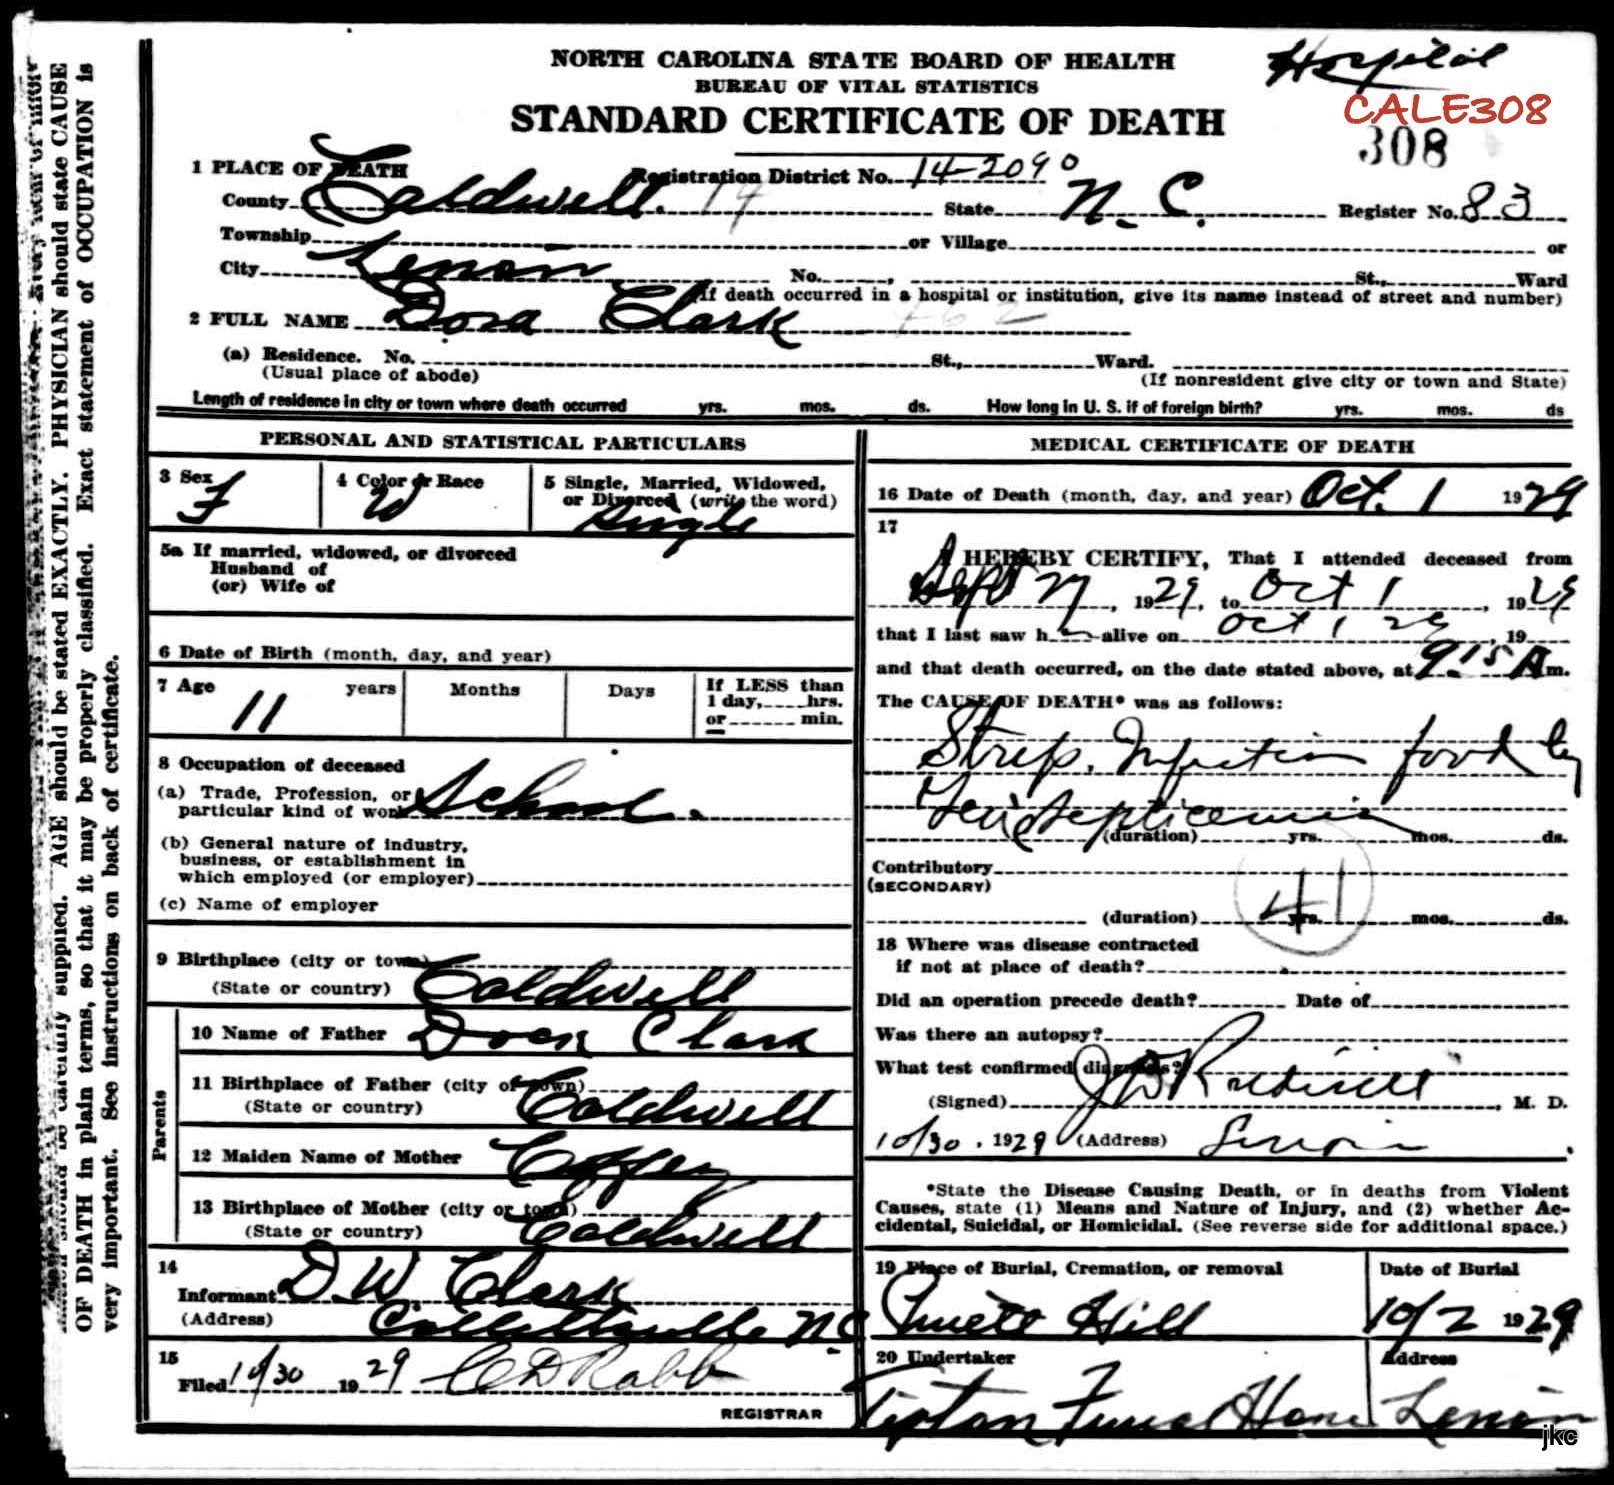 Hospital
NORTH CAROLINA STATE BOARD OF HEALTH
BUREAU OF VITAL STATISTICS
CALE308
STANDARD CERTIFICATE OF DEATH
308
1 PLACE OF DEATH
Registration District No. 14-2090
County Caldwell. 14 State N. C. Register No. 83
Township or Village or
City Lenoir No. , St., Ward
(If death occurred in a hospital or institution, give its name instead of street and number)
2 FULL NAME Dora Clark 462
(a) Residence. No. St., Ward.
(Usual place of abode) (If nonresident give city or town and State)
Length of residence in city or town where death occurred yrs. mos. ds. How long in U. S. if of foreign birth? yrs. mos. ds
PERSONAL AND STATISTICAL PARTICULARS
3 Sex F
4 Color or Race W
5 Single, Married, Widowed, or Divorced (write the word) Single
5a If married, widowed, or divorced
Husband of
(or) Wife of
6 Date of Birth (month, day, and year)
7 Age 11 years Months Days If LESS than 1 day, hrs. or min.
8 Occupation of deceased
(a) Trade, Profession, or particular kind of work School.
(b) General nature of industry,
business, or establishment in
which employed (or employer)
(c) Name of employer
9 Birthplace (city or town)
(State or country) Caldwell
Parents
10 Name of Father Dock Clark
11 Birthplace of Father (city or town)
(State or country) Caldwell
12 Maiden Name of Mother Coffey
13 Birthplace of Mother (city or town)
(State or country) Caldwell
14
Informant D. W. Clark
(Address) Collettsville N.C.
15
Filed 10/30 1929 C D Rabb
REGISTRAR
MEDICAL CERTIFICATE OF DEATH
16 Date of Death (month, day, and year) Oct. 1 1929
17
I HEREBY CERTIFY, That I attended deceased from
Sept 27, 1929, to Oct 1, 1929
that I last saw h alive on Oct 1 29, 19
and that death occurred, on the date stated above, at 9 15 A m.
The CAUSE OF DEATH* was as follows:
Strep. Infection foot
Septicemia
(duration) yrs. mos. ds.
Contributory
(SECONDARY)
41
(duration) yrs. mos. ds.
18 Where was disease contracted
if not at place of death?
Did an operation precede death? Date of
Was there an autopsy?
What test confirmed diagnosis?
(Signed) , M. D.
10/30, 1929 (Address) Lenoir
*State the Disease Causing Death, or in deaths from Violent
Causes, state (1) Means and Nature of Injury, and (2) whether Ac-
cidental, Suicidal, or Homicidal. (See reverse side for additional space.)
19 Place of Burial, Cremation, or removal Hill
Date of Burial 10/2 1929
20 Undertaker Tipton Funeral Home
Address Lenoir
jkc
should be carefully supplied. AGE should be stated EXACTLY. PHYSICIAN should state CAUSE
OF DEATH in plain terms, so that it may be properly classified. Exact statement of OCCUPATION is
very important. See instructions on back of certificate.